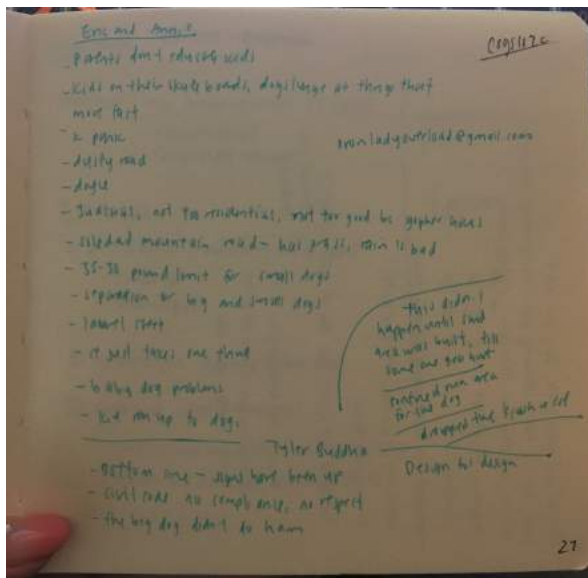 Eric and Annie
Cogs 102c
- parents don't educate kids
- kids on their skateboards, dogs lunge at things that
move fast
- panic
- dusty road
- dogs
- Judicial, not residential, not too good bc gopher holes
- soledad mountain road - has grass, rain is bad
- 35-30 pound limit for small dogs
- separation of big and small dogs
- laurel street
- it just takes one thing
- baby dog problems
- kid run up to dogs
this didn't
happen until said
area was built, till
some one got hurt
confined run area
for the dog
dropped the leash
Tyler Buddha
Design to design
- bottom line - signs have been up
- civil code no compliance, no respect
- the big dog didn't do harm
27